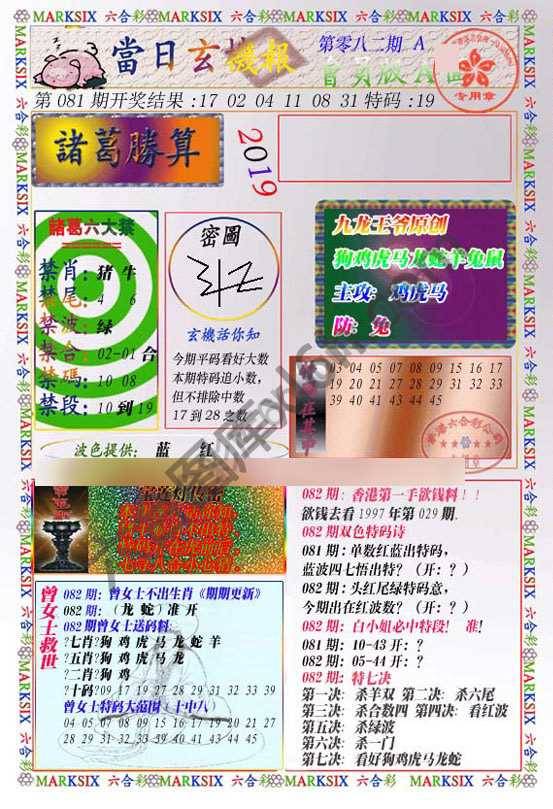 MARKSIX 六合彩 MARKSIX 六合彩 MARKSIX 六合彩 MARKSIX 六合彩
當日玄機報
第零八二期 A
會員版A面
专用章
第 081 期开奖结果:17 02 04 11 08 31特码:19
諸葛勝算
2019
諸葛六大禁
禁肖:猪 牛
禁尾: 4 6
禁波:绿
禁合:02-01 合
禁碼:10 08
禁段:10 到 19
密圖
玄機話你知
今期平码看好大数
本期特码追小数,
但不排除中数
17 到 28 之数
九龙王爷原创
狗鸡虎马龙蛇羊兔鼠
主攻: 鸡虎马
防: 兔
03 04 05 07 08 09 15 16 17
19 20 21 27 28 29 31 32 33
39 40 41 43 44 45
波色提供: 蓝 红
082 期: 香港第一手欲钱料!!
欲钱去看 1997 年第 029 期.
082 期双色特码诗
081 期:单数红蓝出特码,
蓝波四七悟出特? (开: ? )
082 期:头红尾绿特码意,
今期出在红波数? (开: ? )
082 期: 白小姐必中特段! 准!
081 期: 10-43 开: ?
082 期: 05-44 开: ?
082 期: 特七决
第一决: 杀羊双 第二决: 杀六尾
第三决: 杀合数四 第四决: 看红波
第五决: 杀绿波
第六决: 杀一门
第七决: 看好狗鸡虎马龙蛇
曾女士救世
082 期: 曾女士不出生肖《期期更新》
082 期: (龙 蛇) 准 开
082 期曾女士送码料:
?七肖?狗 鸡 虎 马 龙 蛇 羊
?五肖?狗 鸡 虎 马 龙
?二肖?狗 鸡
?十码?09 17 19 27 28 29 31 32 33 39
曾女士特码大范围(十中八)
04 05 07 08 09 15 16 17 19 20 21 27
28 29 31 32 33 39 40 41 43 44 45
MARKSIX 六合彩 MARKSIX 六合彩 MARKSIX 六合彩 MARKSIX 六合彩